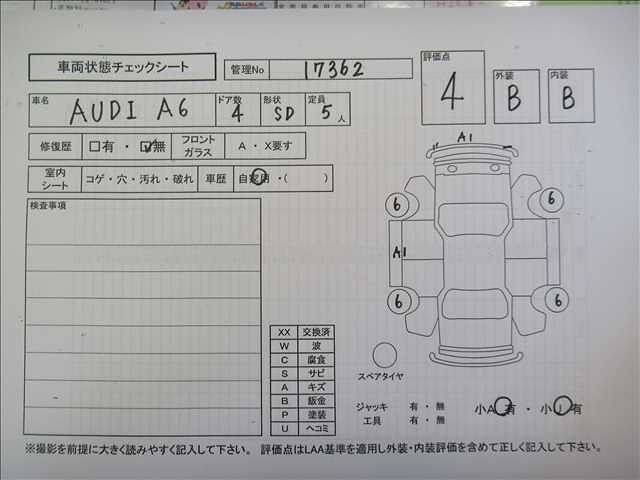 車両状態チェックシート
管理No 17362
評価点 4
外装 B
内装 B
車名 AUDI A6
ドア数 4
形状 SD
定員 5 人
修復歴 □有 ・ ☑無
フロントガラス A ・ X要す
室内シート コゲ・穴・汚れ・破れ
車歴 自家用 ・( )
検査事項
A1
6
6
A1
6
6
スペアタイヤ
XX 交換済
W 波
C 腐食
S サビ
A キズ
B 鈑金
P 塗装
U ヘコミ
ジャッキ 有 ・ 無
工具 有 ・ 無
小A 有 ・ 小U 有
※撮影を前提に大きく読みやすく記入して下さい。 評価点はLAA基準を適用し外装・内装評価を含めて正しく記入して下さい。